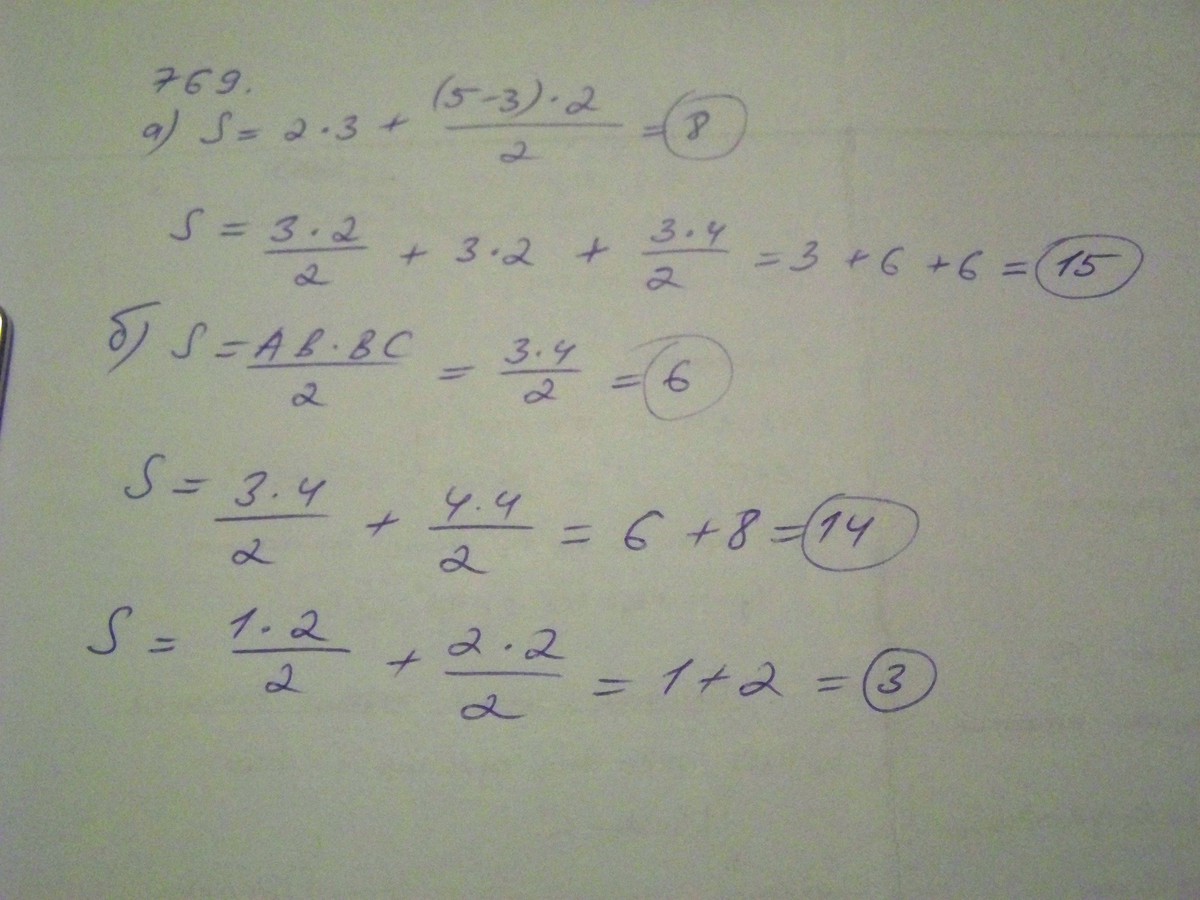 769.
а) S = 2·3 + (5-3)·2/2 = 8
S = 3·2/2 + 3·2 + 3·4/2 = 3 + 6 + 6 = 15
б) S = AB·BC/2 = 3·4/2 = 6
S = 3·4/2 + 4·4/2 = 6 + 8 = 14
S = 1·2/2 + 2·2/2 = 1 + 2 = 3